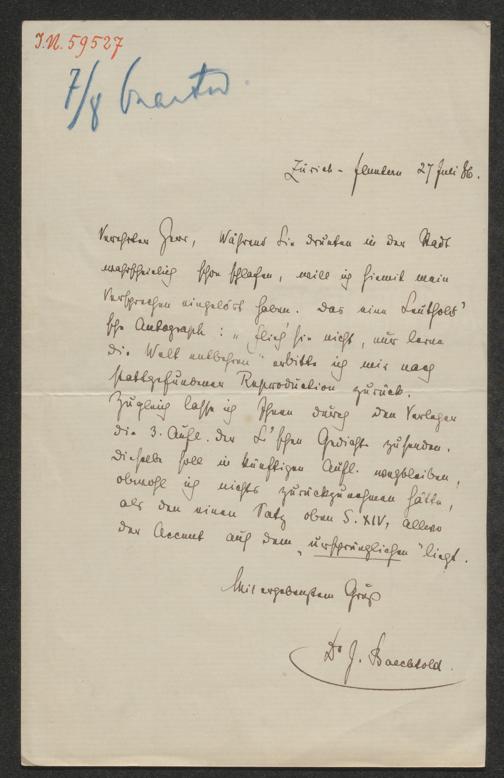 I.N. 59527
7/8
Zürich-Fluntern 27 Juli 86.
Verehrter Herr, Während Sie drunten in der Stadt
wahrscheinlich schon schlafen, will ich hiemit mein
Versprechen eingelöst haben. Das eine Leuthold'
sche Autograph: „Flieh' sie nicht, nur lerne
die Welt entbehren" erbitte ich mir nach
stattgefundener Reproduction zurück.
Zugleich lasse ich Ihnen durch den Verleger
die 3. Aufl. der L'schen Gedichte zusenden.
Dieselbe soll in künftigen Aufl. wegbleiben,
obwohl ich nichts zurückzunehmen hätte,
als den einen Satz oben S. XIV, allwo
der Accent auf dem „ursprünglichen" liegt.
Mit ergebenstem Gruß
Dr J. Baechtold.